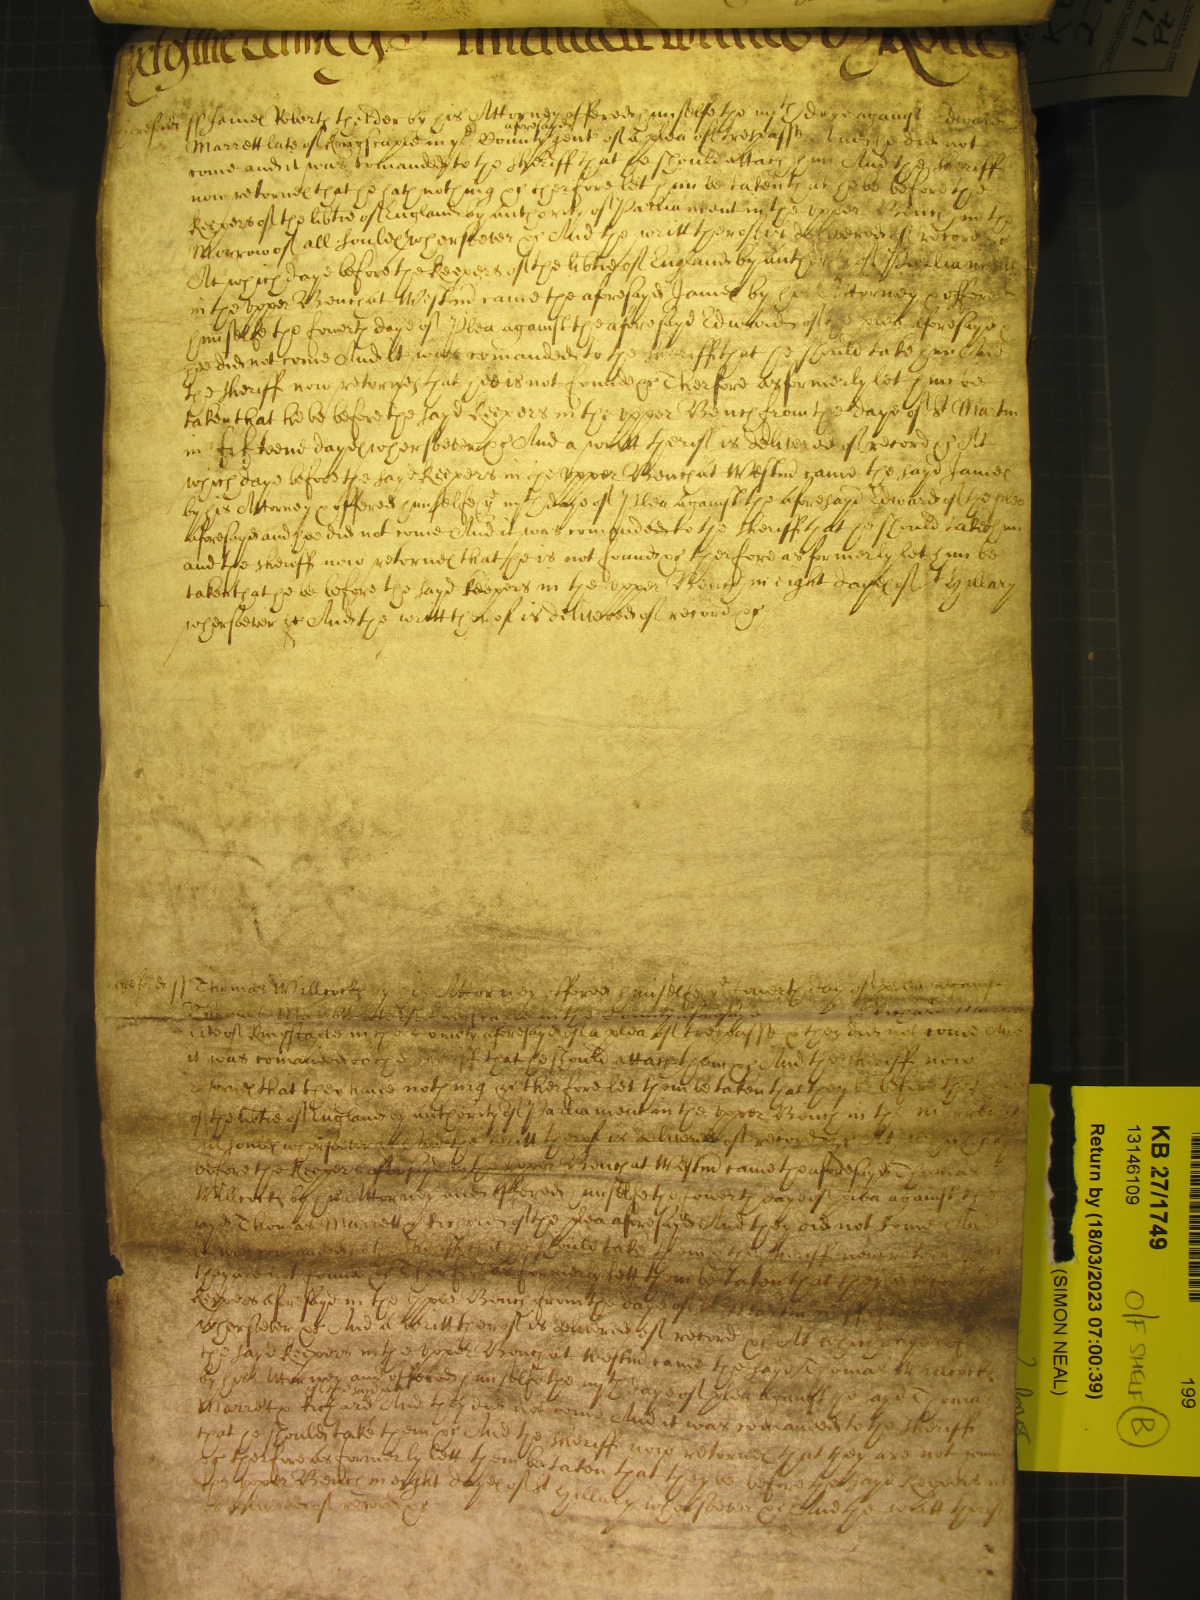 James Roberts the elder by his Attorney offered himselfe the iiijth daye against Edward
Marrett late of Kingscaple in ye County aforesayd gent of a plea of trespasse And he did not
come and it was comanded to the Sheriff that he should attach him And the Sheriff
now returnes that he hath nothing &c therfore let him be taken that he be before the
Keepers of the libtie of England by authority of Parliament in the upper Bench in the
Morrow of all soules whersoever &c And the writt therof is delivered of record &c
At which daye before the Keepers of the libtie of England by authority of Parliament
in the upper Bench at Westm came the aforesayd James by his Attorney & offered
himselfe the fowerth daye of Plea against the aforesayd Edward of the plea aforesayd &
he did not come And it was comanded to the Sheriff that he should take him And
the Sheriff now returnes that he is not found &c Therfore as formerly let him be
taken that he be before the sayd Keepers in the upper Bench from the daye of St Martin
in fifteene dayes whersoever &c And a writt therof is delivered of record &c At
which daye before the sayd Keepers in the upper Bench at Westm came the sayd James
by his Attorney & offered himselfe ye iiijth daye of Plea against the aforesayd Edward of the plea
aforesayd and hee did not come And it was comanded to the Sheriff that he should take him
and the Sheriff now returnes that he is not found &c therfore as formerly let him be
taken that he be before the sayd Keepers in the upper Bench in eight dayes of St Hillary
whersoever &c And the writt therof is delivered of record &c
Thomas Willcocks by his Attorney offered himselfe ye fowerth day of plea against
Thomas Marrett late of Kingscaple in the County aforesayd & Richard Marrett
late of Kingscaple in the County aforesayd of a plea of trespasse & they did not come And
it was comanded to the Sheriff that he should attach them &c And the Sheriff now
returnes that they have nothing &c therfore let them be taken that they be before the
of the libtie of England by authority of Parliament in the upper Bench in the morrow
all soules whersoever &c And the writt therof is delivered of record &c At which day
before the Keepers aforesayd in the upper Bench at Westm came the aforesayd Thomas
Willcocks by his Attorney and offered himselfe the fowerth daye of plea against the
sayd Thomas Marrett & Richard of the plea aforesayd And they did not come And
it was comanded to the Sheriff that he should take them &c the Sheriff now
they are not found &c therfore as formerly lett them be taken that they be
Keepers aforesayd in the upper Bench from the daye of St Martin in fifteene
whersoever &c And a writt therof is delivered of record &c At which daye before
the sayd Keepers in the upper Bench at Westm came the sayd Thomas Willcocks
by his Attorney and offered himselfe the iiijth daye of plea against the sayd Thomas
Marrett & Richard of the sayd plea And they did not come And it was comanded to the Sheriff
that he should take them &c And the Sheriff now returnes that they are not found
&c therfore as formerly lett them be taken that they be before the sayd Keepers in
the upper Bench in eight dayes of St Hillary whersoever &c And the writt therof
is delivered of record &c
KB 27/1749
13146109
Return by (18/03/2023 07:00:39)
(SIMON NEAL)
O/F SHELF B
199